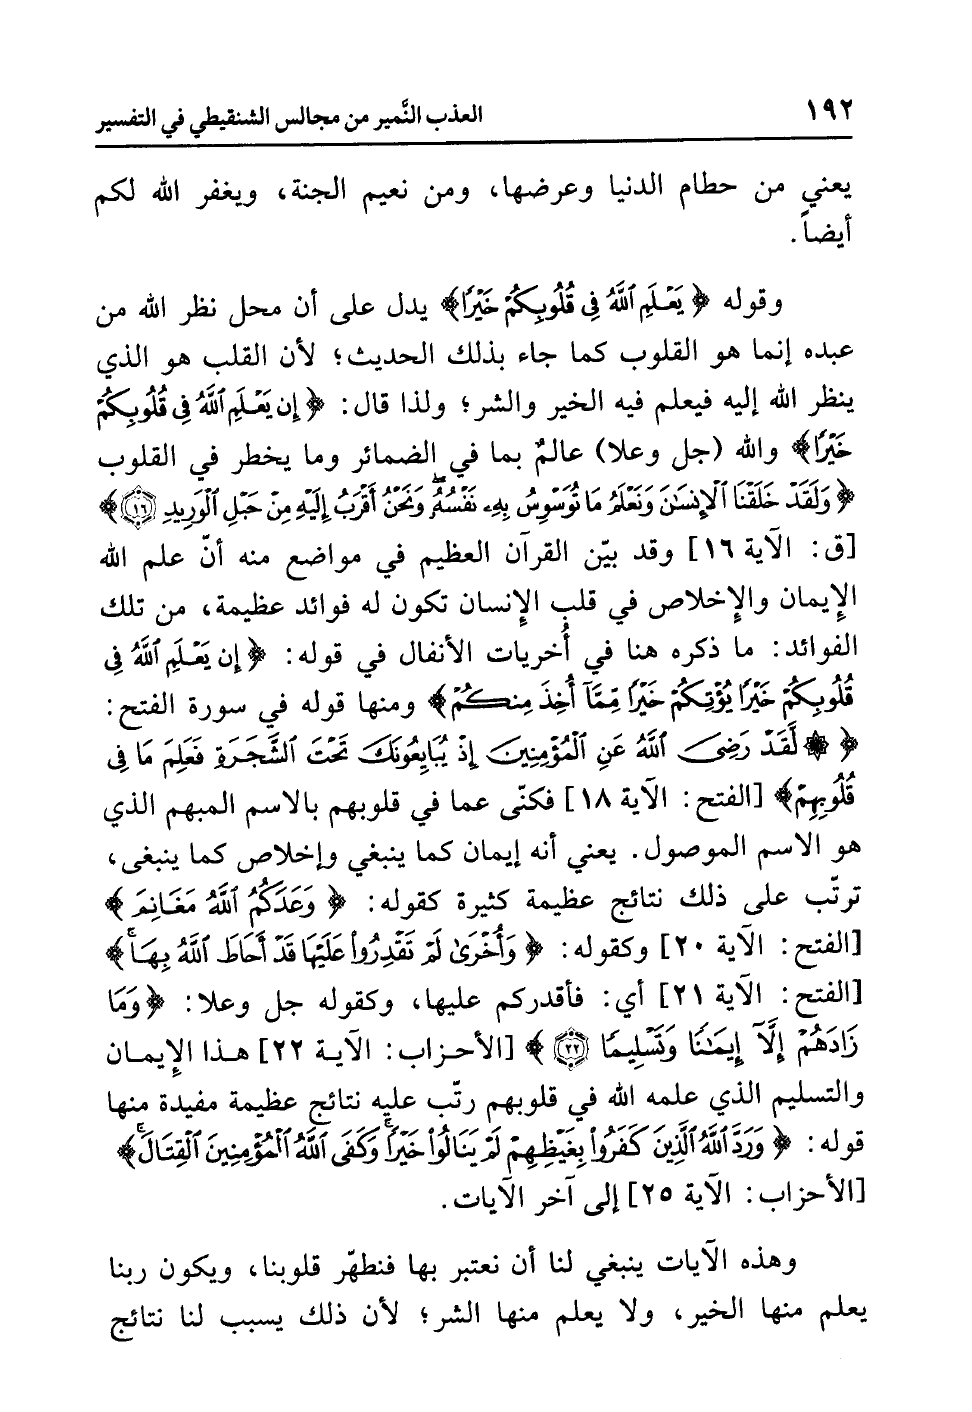 ١٩٢ العذب النَّمير من مجالس الشنقيطي في التفسير
يعني من حطام الدنيا وعرضها، ومن نعيم الجنة، ويغفر الله لكم
أيضاً.
وقوله ﴿يَعْلَمِ ٱللَّهُ فِى قُلُوبِكُمْ خَيْرًا﴾ يدل على أن محل نظر الله من
عبده إنما هو القلوب كما جاء بذلك الحديث؛ لأن القلب هو الذي
ينظر الله إليه فيعلم فيه الخير والشر؛ ولذا قال: ﴿إِن يَعْلَمِ ٱللَّهُ فِى قُلُوبِكُمْ
خَيْرًا﴾ والله (جل وعلا) عالمٌ بما في الضمائر وما يخطر في القلوب
﴿وَلَقَدْ خَلَقْنَا ٱلْإِنسَٰنَ وَنَعْلَمُ مَا تُوَسْوِسُ بِهِۦ نَفْسُهُۥ وَنَحْنُ أَقْرَبُ إِلَيْهِ مِنْ حَبْلِ ٱلْوَرِيدِ ١٦﴾
[ق: الآية ١٦] وقد بيّن القرآن العظيم في مواضع منه أنّ علم الله
الإيمان والإخلاص في قلب الإنسان تكون له فوائد عظيمة، من تلك
الفوائد: ما ذكره هنا في أُخريات الأنفال في قوله: ﴿إِن يَعْلَمِ ٱللَّهُ فِى
قُلُوبِكُمْ خَيْرًا يُؤْتِكُمْ خَيْرًا مِّمَّآ أُخِذَ مِنكُمْ﴾ ومنها قوله في سورة الفتح:
﴿۞ لَّقَدْ رَضِىَ ٱللَّهُ عَنِ ٱلْمُؤْمِنِينَ إِذْ يُبَايِعُونَكَ تَحْتَ ٱلشَّجَرَةِ فَعَلِمَ مَا فِى
قُلُوبِهِمْ﴾ [الفتح: الآية ١٨] فكنّى عما في قلوبهم بالاسم المبهم الذي
هو الاسم الموصول. يعني أنه إيمان كما ينبغي وإخلاص كما ينبغي،
ترتّب على ذلك نتائج عظيمة كثيرة كقوله: ﴿وَعَدَكُمُ ٱللَّهُ مَغَانِمَ﴾
[الفتح: الآية ٢٠] وكقوله: ﴿وَأُخْرَىٰ لَمْ تَقْدِرُوا۟ عَلَيْهَا قَدْ أَحَاطَ ٱللَّهُ بِهَاۚ﴾
[الفتح: الآية ٢١] أي: فأقدركم عليها، وكقوله جل وعلا: ﴿وَمَا
زَادَهُمْ إِلَّآ إِيمَٰنًا وَتَسْلِيمًا ٢٢﴾ [الأحزاب: الآية ٢٢] هذا الإيمان
والتسليم الذي علمه الله في قلوبهم رتّب عليه نتائج عظيمة مفيدة منها
قوله: ﴿وَرَدَّ ٱللَّهُ ٱلَّذِينَ كَفَرُوا۟ بِغَيْظِهِمْ لَمْ يَنَالُوا۟ خَيْرًاۚ وَكَفَى ٱللَّهُ ٱلْمُؤْمِنِينَ ٱلْقِتَالَۚ﴾
[الأحزاب: الآية ٢٥] إلى آخر الآيات.
وهذه الآيات ينبغي لنا أن نعتبر بها فنطهّر قلوبنا، ويكون ربنا
يعلم منها الخير، ولا يعلم منها الشر؛ لأن ذلك يسبب لنا نتائج